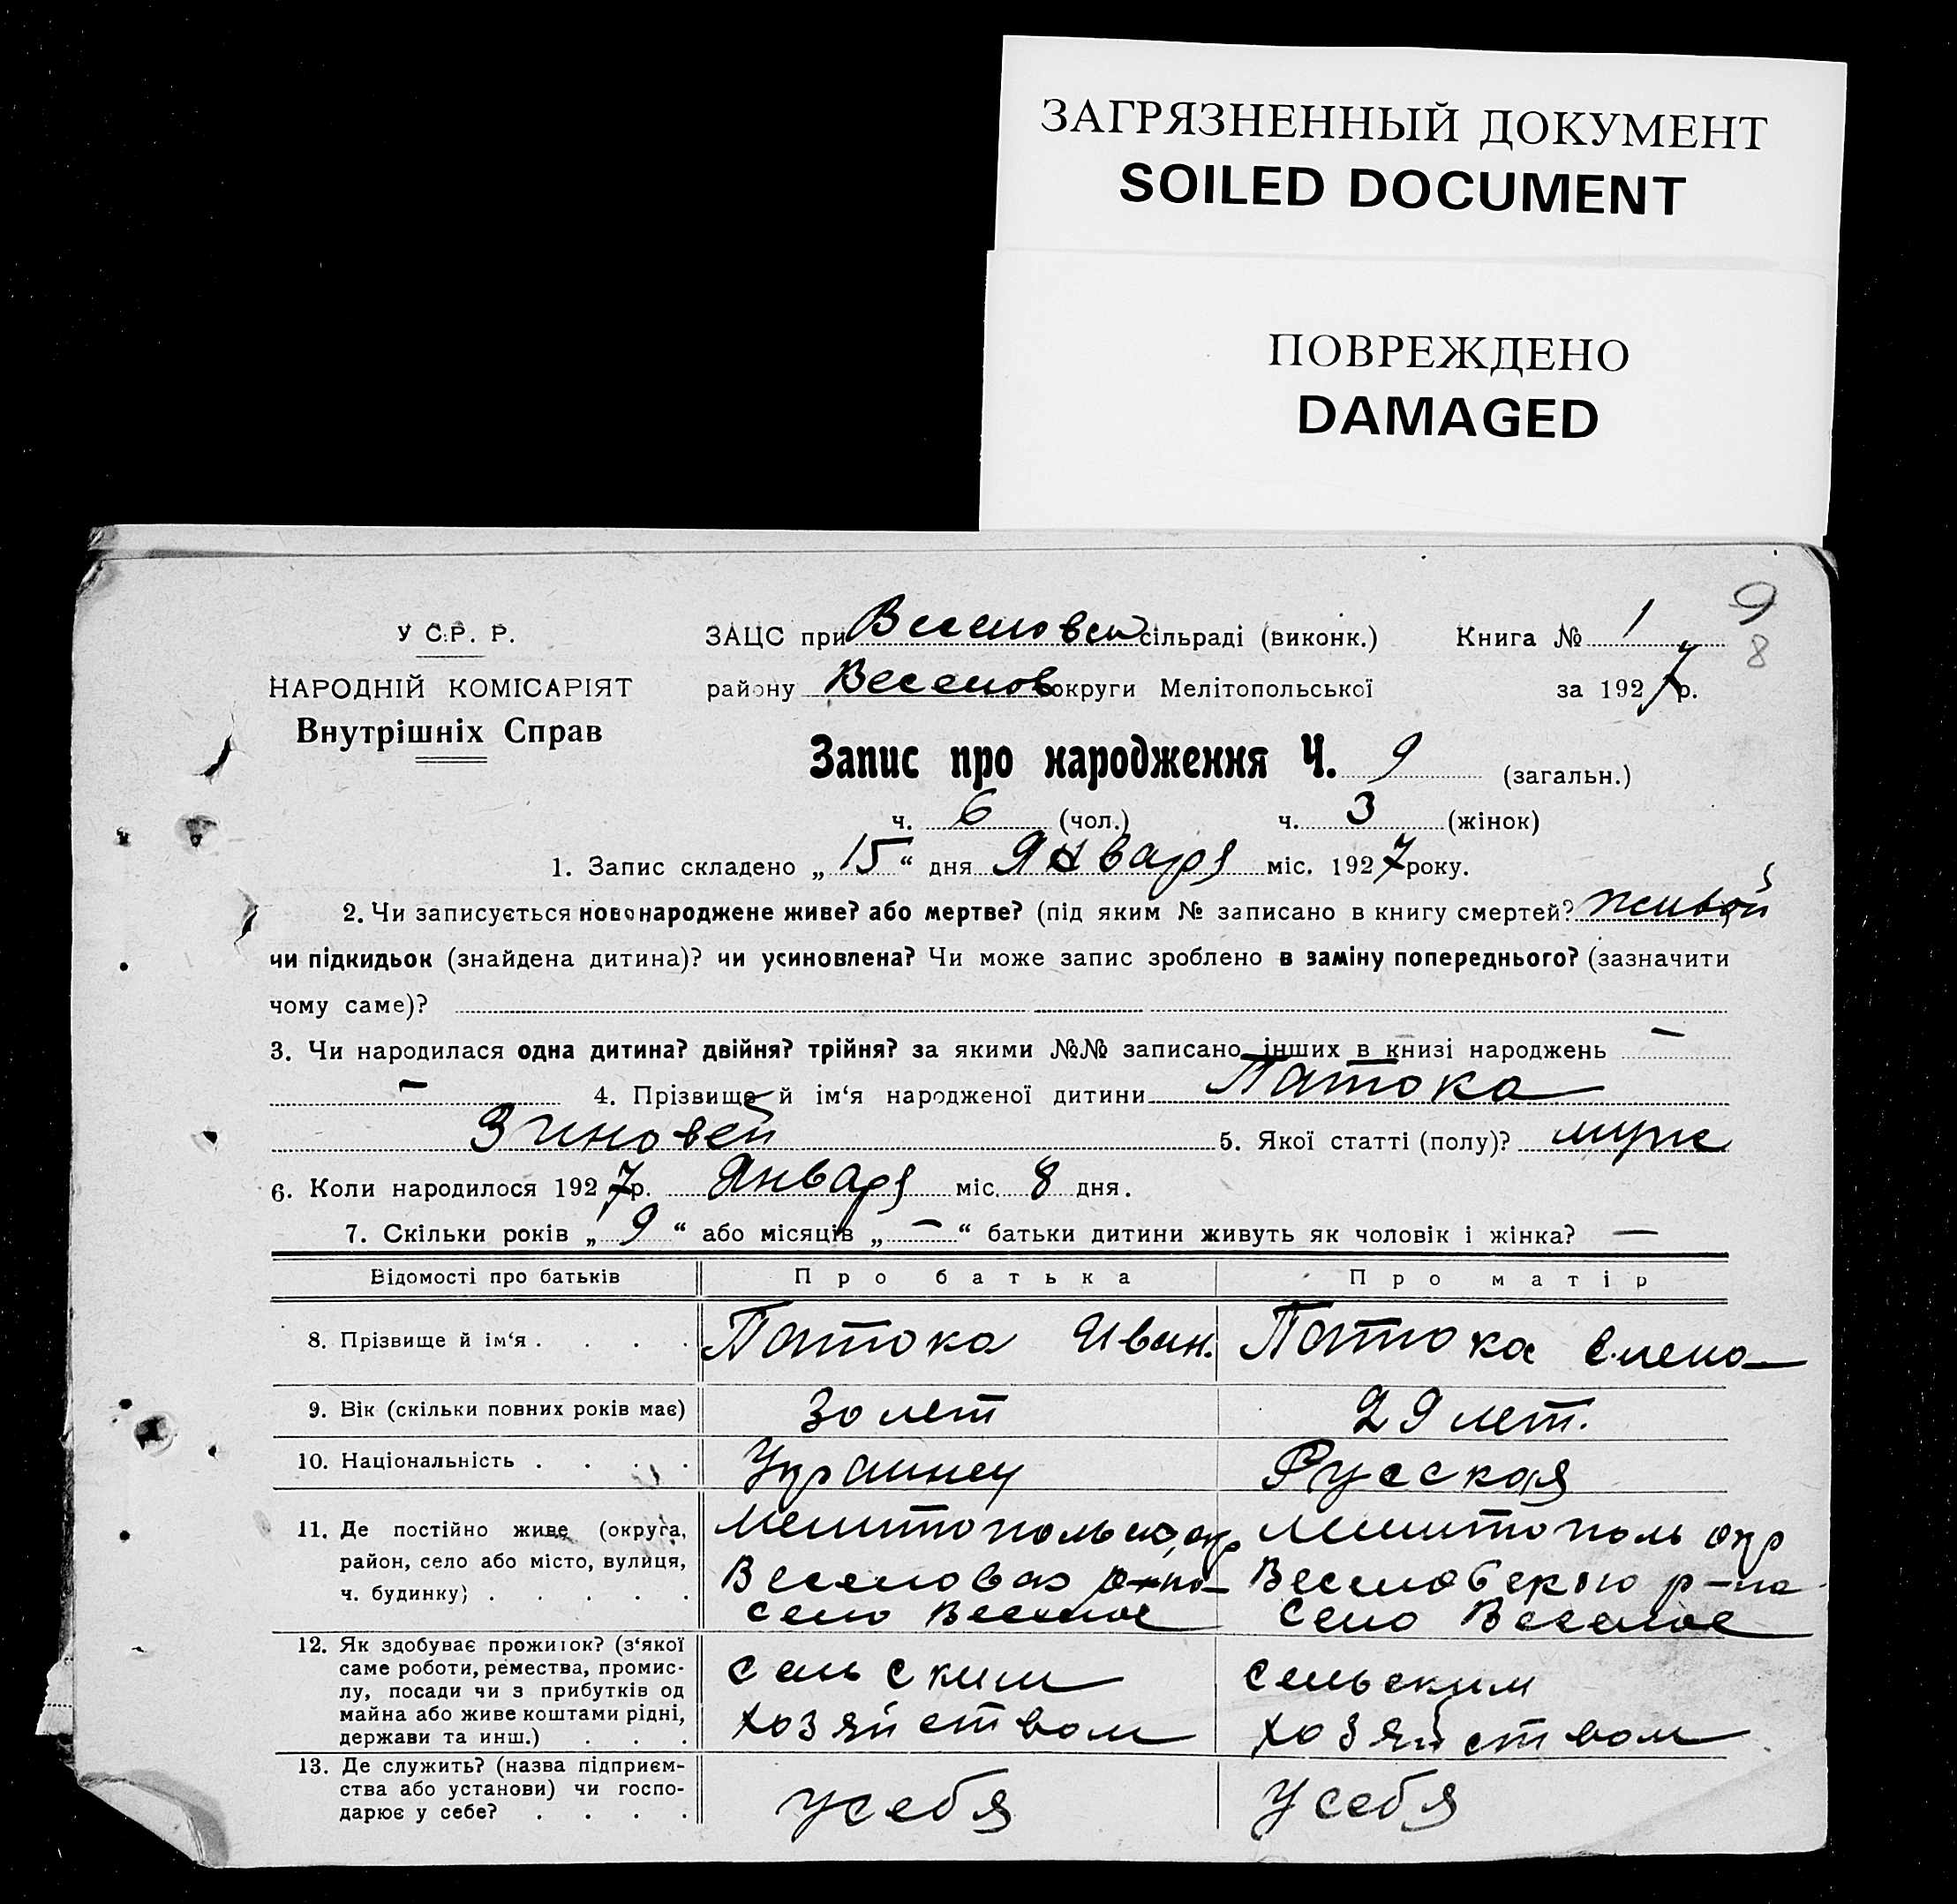 ЗАГРЯЗНЕННЫЙ ДОКУМЕНТ
SOILED DOCUMENT
ПОВРЕЖДЕНО
DAMAGED
9
8
У С.Р. Р.
НАРОДНІЙ КОМІСАРІЯТ
Внутрішніх Справ
ЗАЦС при Веселовск сільраді (виконк.) Книга № 1
району Веселов округи Мелітопольської за 1927 р.
Запис про народження Ч. 9 (загальн.)
ч. 6 (чол.) ч. 3 (жінок)
1. Запис складено „ 15 “ дня Января міс. 1927 року.
2. Чи записується новонароджене живе? або мертве? (під яким № записано в книгу смертей? живой
чи підкидьок (знайдена дитина)? чи усиновлена? Чи може запис зроблено в заміну попереднього? (зазначити
чому саме)?
3. Чи народилася одна дитина? двійня? трійня? за якими №№ записано інших в книзі народжень —
— 4. Прізвище й ім‘я народженої дитини Патока
Зиновей 5. Якої статті (полу)? муж
6. Коли народилося 1927 р. Января міс. 8 дня.
7. Скільки років „ 9 “ або місяців „ — “ батьки дитини живуть як чоловік і жінка? —
Відомості про батьків Про батька Про матір
8. Прізвище й ім‘я . . . . Патока Иван. Патока Елена
9. Вік (скільки повних років має) 30 лет 29 лет.
10. Національність . . . . Украинец Русская
11. Де постійно живе (округа, Мелитопольск, окр Мелитополь окр
район, село або місто, вулиця, Веселовск р-на Веселовского р-на
ч. будинку) . . . . . село Веселое село Веселое
12. Як здобуває прожиток? (з‘якої
саме роботи, ремества, промис- сельским сельским
лу, посади чи з прибутків од
майна або живе коштами рідні, хозяйством хозяйством
держави та инш.) . . .
13. Де служить? (назва підприєм-
ства або установи) чи госпо- у себя у себя
дарює у себе? . . . .